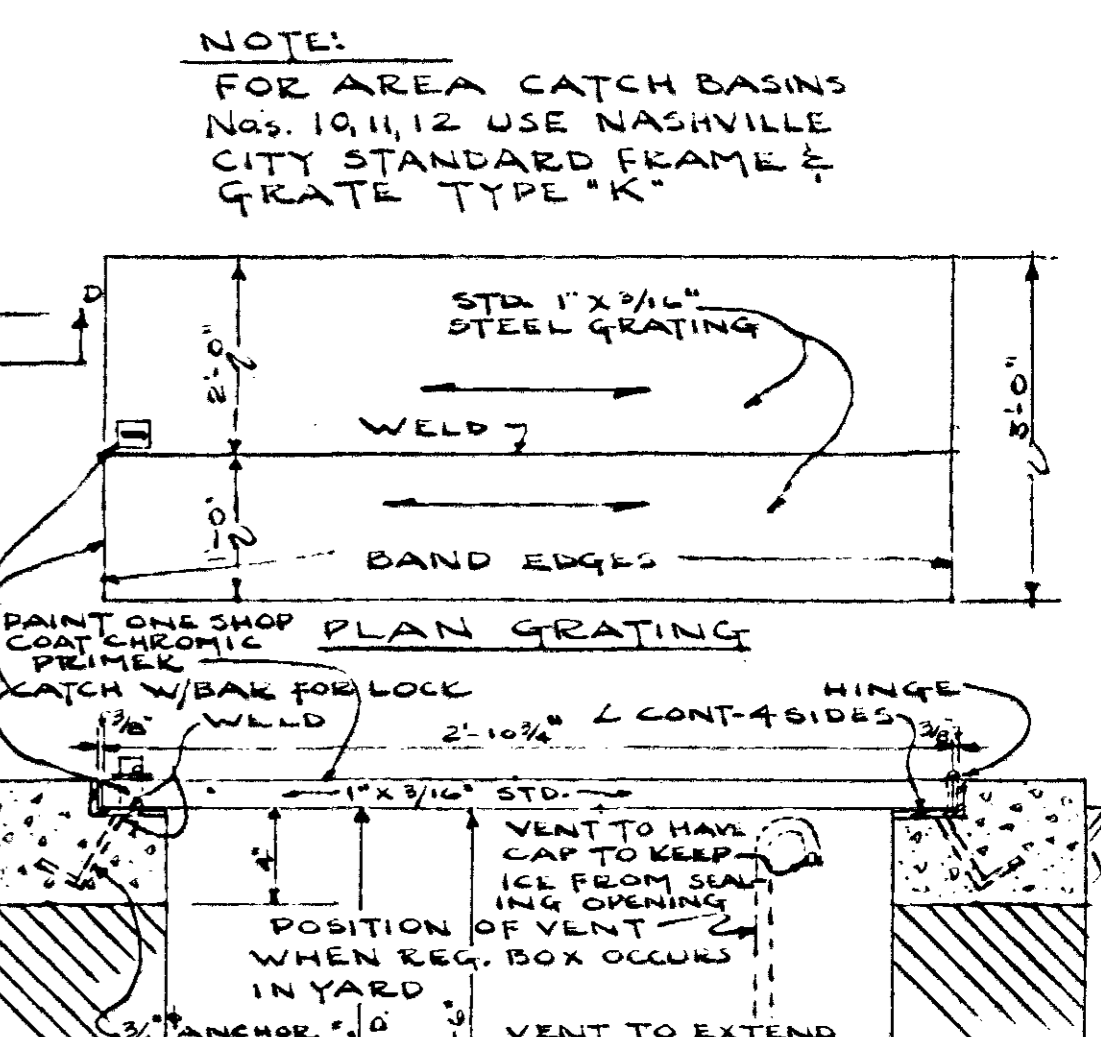 NOTE:
FOR AREA CATCH BASINS
Nos. 10, 11, 12 USE NASHVILLE
CITY STANDARD FRAME &
GRATE TYPE "K"
D
STD. 1" X 3/16"
STEEL GRATING
2'-0"
3'-0"
WELD
1'-0"
BAND EDGES
PAINT ONE SHOP
COAT CHROMIC
PRIMER
PLAN GRATING
CATCH W/BAR FOR LOCK
HINGE
3/8"
WELD
2'-10 3/4"
L CONT-4 SIDES
3/8"
1" X 3/16" STD.
4"
VENT TO HAVE
CAP TO KEEP
ICE FROM SEAL-
ING OPENING
POSITION OF VENT
WHEN REG. BOX OCCURS
IN YARD
ANCHOR
VENT TO EXTEND